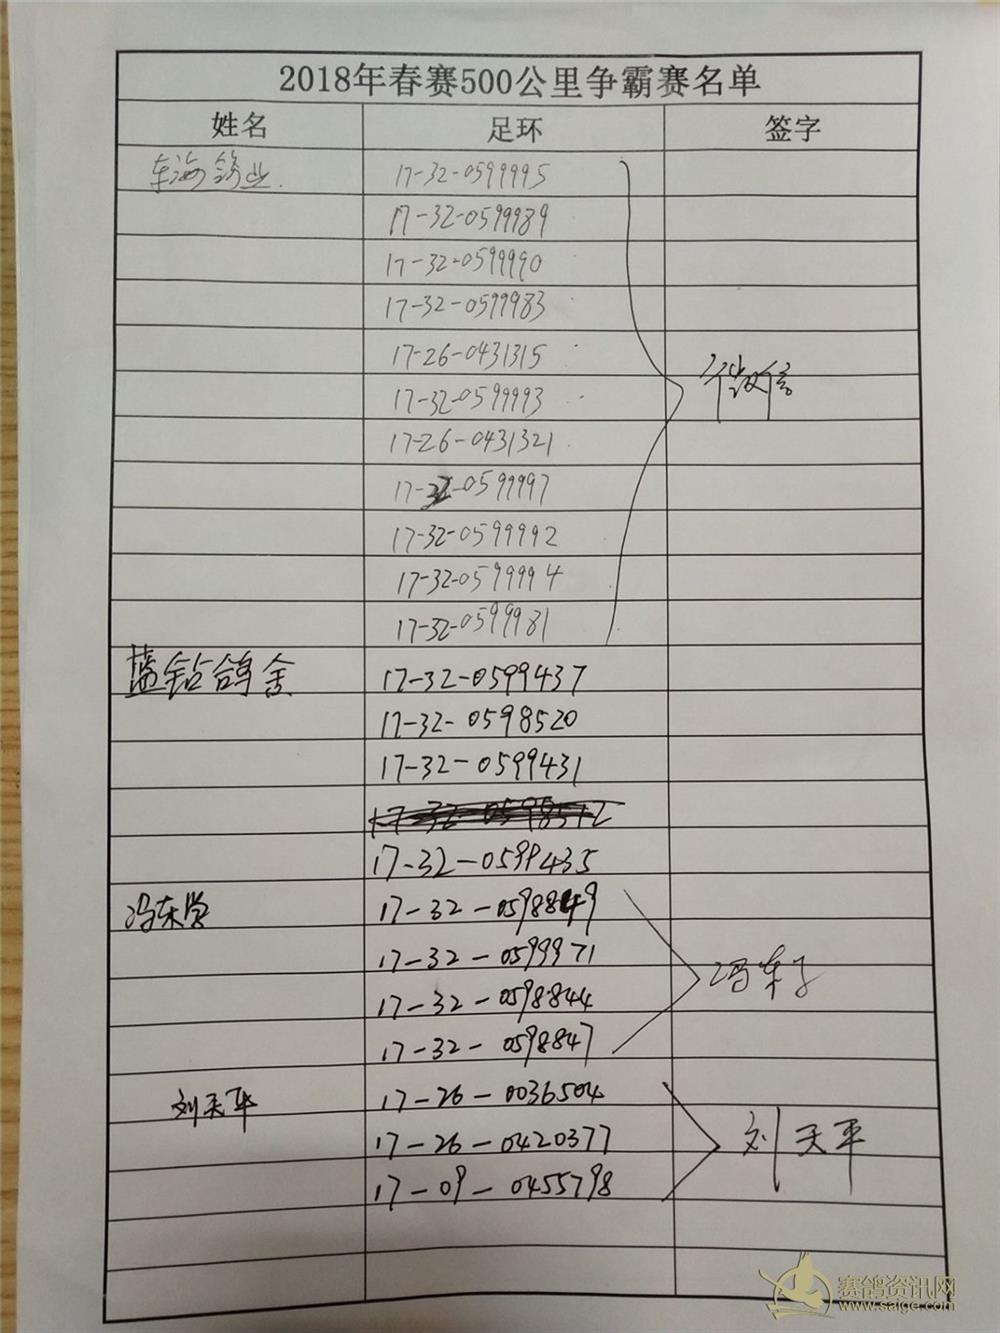 2018年春赛500公里争霸赛名单
姓名 足环 签字
东海鸽业 17-32-0599995
17-32-0599989
17-32-0599990
17-32-0599983
17-26-0431315
微信
17-32-0599993
17-26-0431321
17-32-0599997
17-32-0599992
17-32-0599994
17-32-0599981
蓝钻鸽舍 17-32-0599437
17-32-0598520
17-32-0599431
17-32-0598512
17-32-0599435
冯东学 17-32-0598849
17-32-0599971
冯东
17-32-0598844
17-32-0598847
刘天平 17-26-0036504
17-26-0420377 刘天平
17-09-0455798
赛鸽资讯网
www.saige.com